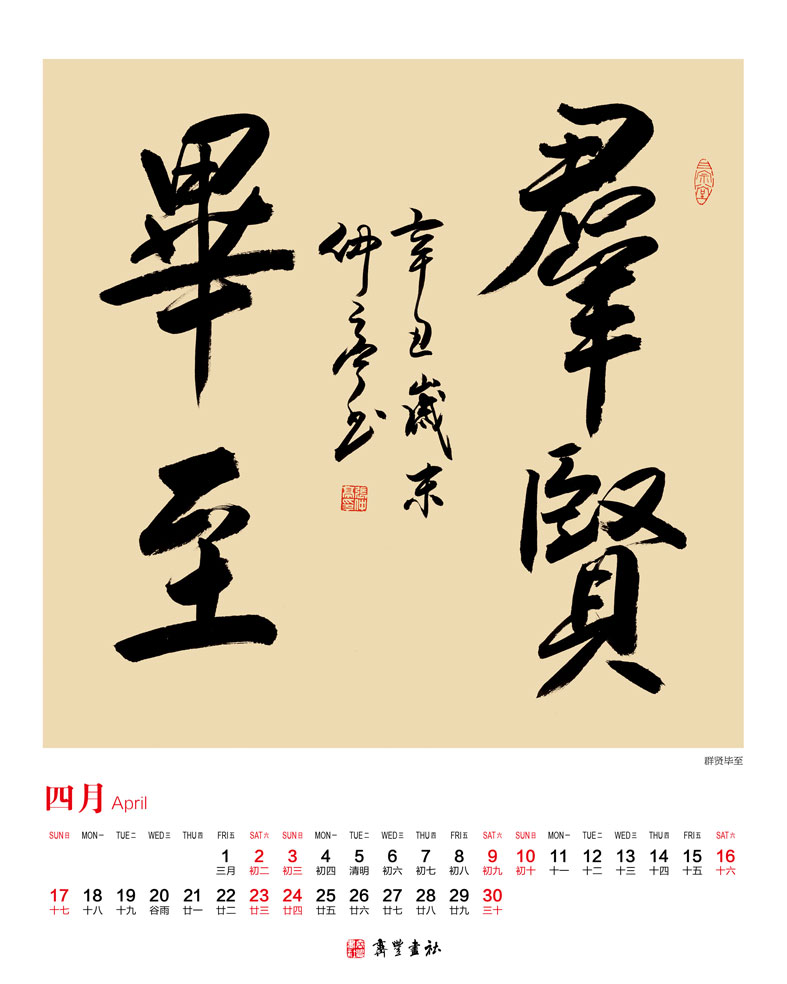 羣賢
畢至
辛丑歲末
仲亭书
群贤毕至
四月 April
SUN日 MON一 TUE二 WED三 THU四 FRI五 SAT六 SUN日 MON一 TUE二 WED三 THU四 FRI五 SAT六 SUN日 MON一 TUE二 WED三 THU四 FRI五 SAT六
1 2 3 4 5 6 7 8 9 10 11 12 13 14 15 16
三月 初二 初三 初四 清明 初六 初七 初八 初九 初十 十一 十二 十三 十四 十五 十六
17 18 19 20 21 22 23 24 25 26 27 28 29 30
十七 十八 十九 谷雨 廿一 廿二 廿三 廿四 廿五 廿六 廿七 廿八 廿九 三十